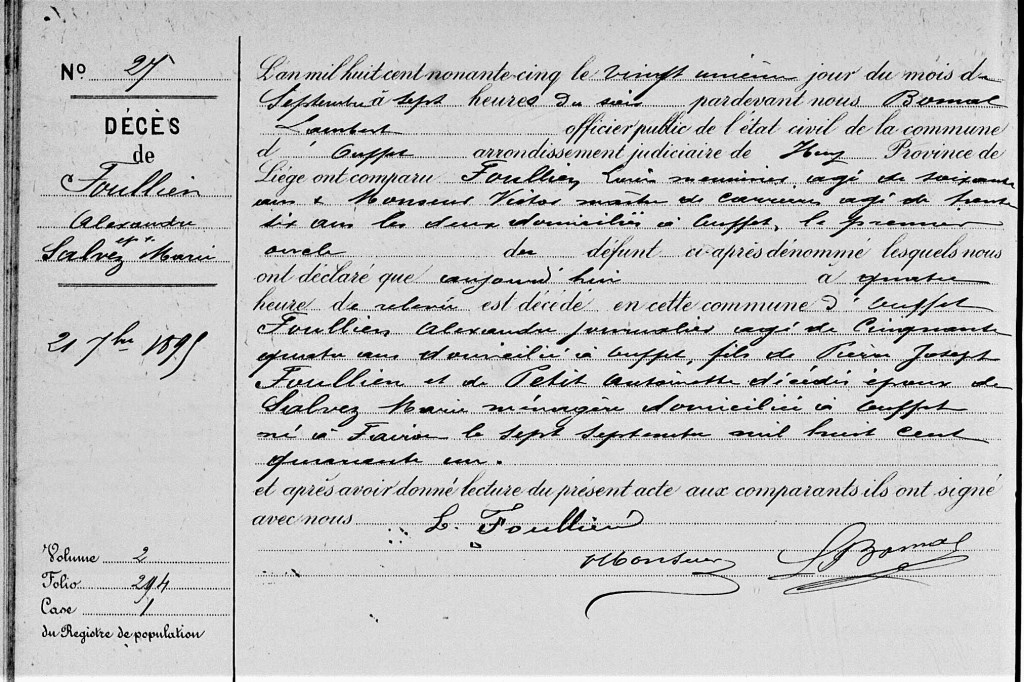 N° 27
DÉCÈS
de
Foullien
Alexandre
epx
Salvez Marie
21 7bre 1895
Volume 2
Folio 294
Case 1
du Registre de population
L'an mil huit cent nonante-cinq le vingt unième jour du mois de
Septembre à sept heures du soir pardevant nous Bomal
Lambert officier public de l'état civil de la commune
d' Ouffet arrondissement judiciaire de Huy Province de
Liége ont comparu Foullien Louis agé de soixante
ans & Monseur Victor maître de carrières agé de trente
six ans les deux domiciliés à Ouffet, le premier
oncle du défunt ci-après dénommé lesquels nous
ont déclaré que aujourd'hui à quatre
heure de relevée est décédé en cette commune d' Ouffet
Foullien Alexandre journalier agé de Cinquante
quatre ans domicilié à Ouffet, fils de Pierre Joseph
Foullien et de Petit Antoinette décédés époux de
Salvez Marie ménagère domiciliée à Ouffet
né à le sept Septembre mil huit cent
quarante un.
et après avoir donné lecture du présent acte aux comparants ils ont signé
avec nous L. Foullien
Monseur LBomal